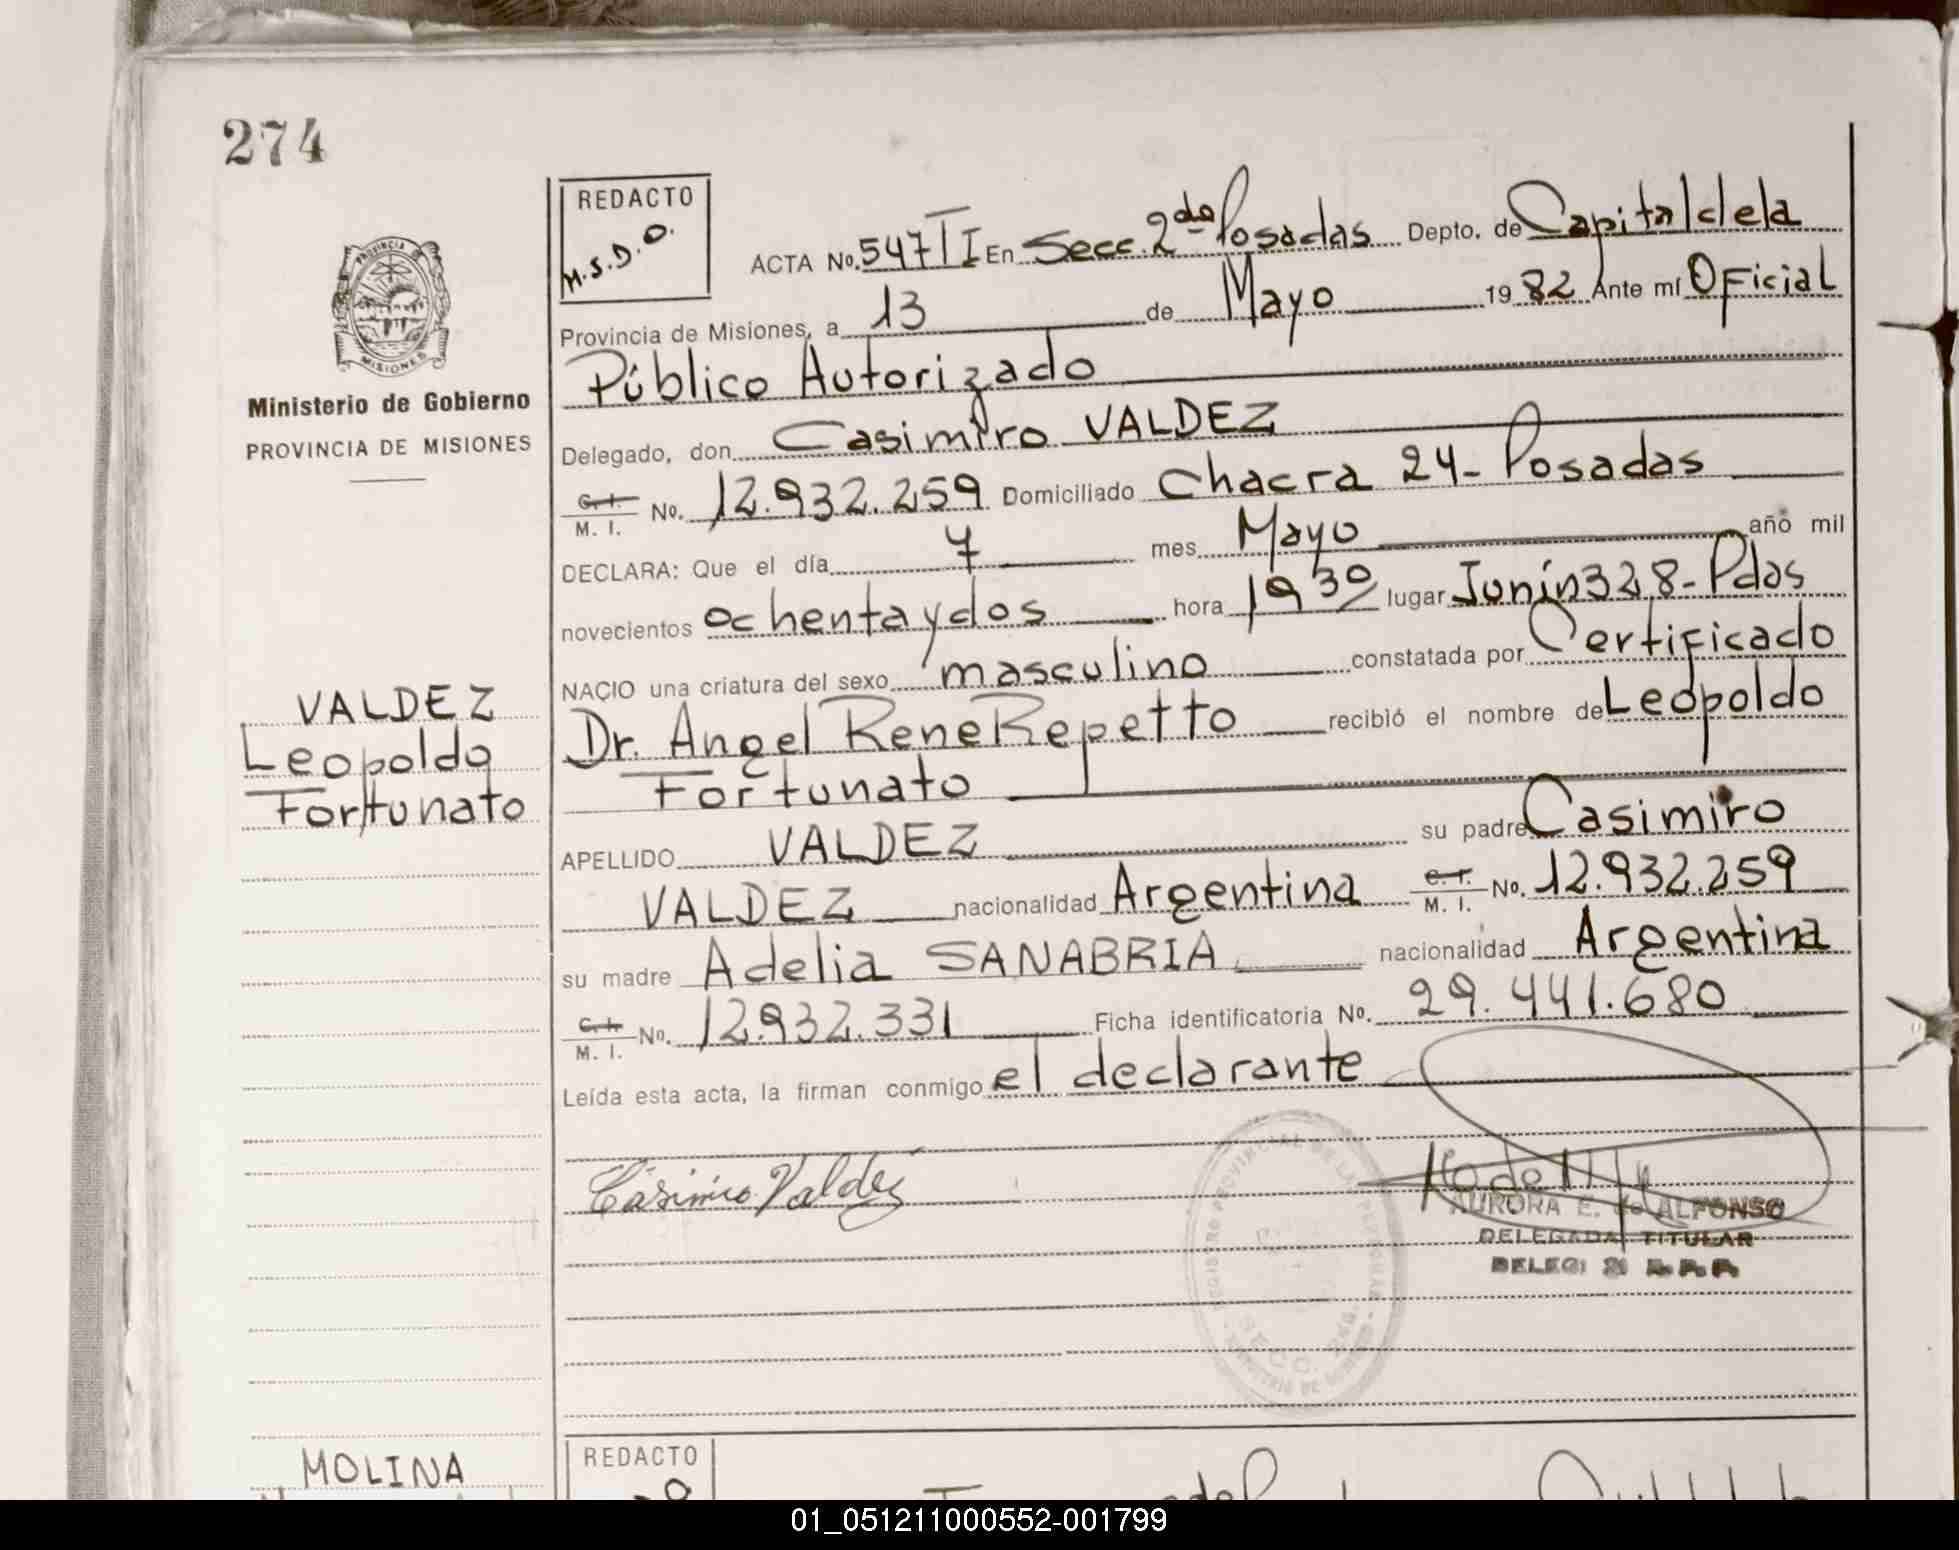 274
REDACTO
M.S.D.O.
PROVINCIA
MISIONES
Ministerio de Gobierno
PROVINCIA DE MISIONES
ACTA No. 547 T I En Secc. 2da Posadas Depto. de Capital de la
Provincia de Misiones, a 13 de Mayo 19 82 Ante mí Oficial
Público Autorizado
Delegado, don Casimiro VALDEZ
C. I. M. I. No. 12.932.259 Domiciliado Chacra 24 - Posadas
DECLARA: Que el día 7 mes Mayo año mil
novecientos ochenta y dos hora 19 30 lugar Junín 328 - Pdas
NACIO una criatura del sexo masculino constatada por Certificado
Dr. Angel Rene Repetto recibió el nombre de Leopoldo
Fortunato
VALDEZ
Leopoldo
Fortunato
APELLIDO VALDEZ su padre Casimiro
VALDEZ nacionalidad Argentina C. I. M. I. No. 12.932.259
su madre Adelia SANABRIA nacionalidad Argentina
C. I. M. I. No. 12.932.331 Ficha identificatoria No. 29.441.680
Leída esta acta, la firman conmigo el declarante
Casimiro Valdez
AURORA E. de ALFONSO
DELEGADA TITULAR
REGISTRO PROVINCIAL DE LAS PERSONAS
SECC. 2da.
MOLINA
REDACTO
01_051211000552-001799